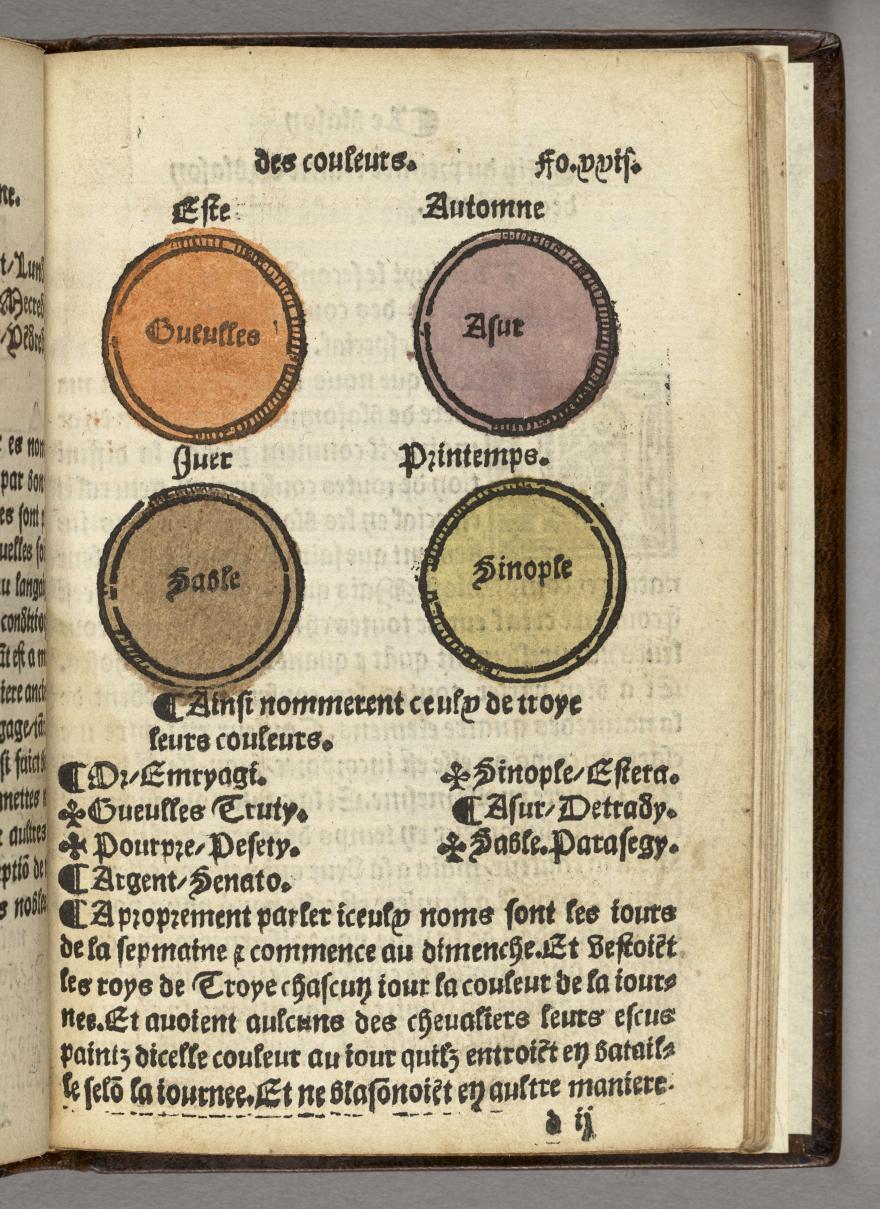 des couleurs. Fo.xxvi.
Este Automne
Gueulles Asur
Iuer Printemps.
Sable Sinople
¶Ainsi nommerent ceulx de troye
leurs couleurs.
¶Or/Emryagi. ✤Sinople/Estera.
✤Gueulles Truty. ¶Asur/Detrady.
✤Pourpre/Pesety. ✤Sable.Parasegy.
¶Argent/Senato.
¶A proprement parler iceulx noms sont les iours
de la sepmaine ⁊ commence au dimenche.Et vestoiẽt
les roys de Troye chascun iour la couleur de la iour⸗
nee.Et auoient aulcuns des cheualiers leurs escus
paintz dicelle couleur au iour quilz entroiẽt en batail⸗
le selõ la iournee.Et ne blasõnoiẽt en aultre maniere.
d ij